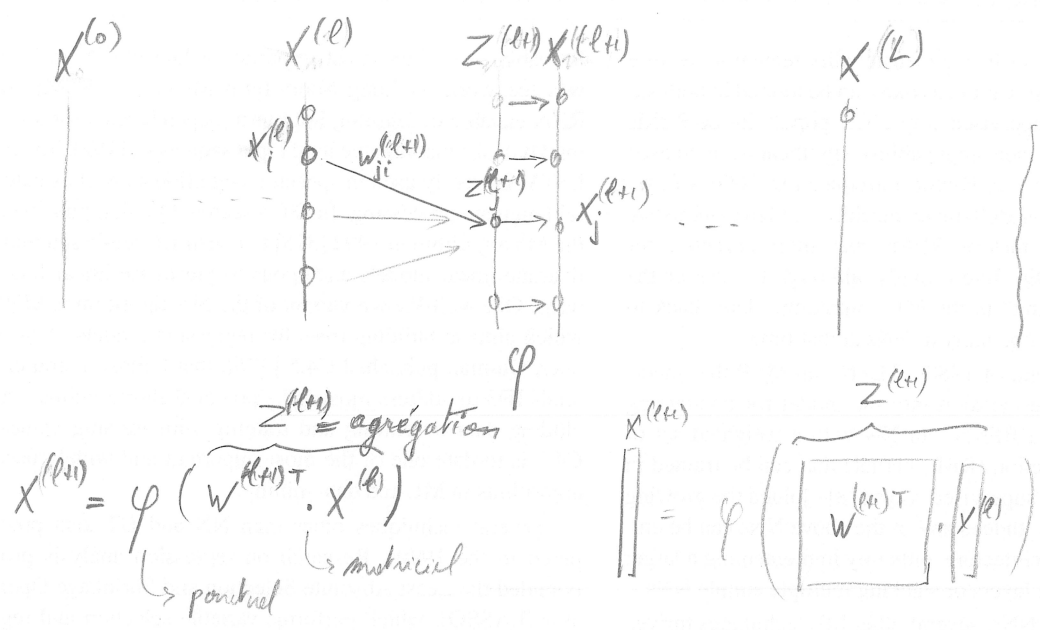 X^(0) X^(l) Z^(l+1) X^(l+1) X^(L)
X_i^(l) w_ji^(l+1) z_j^(l+1) X_j^(l+1)
- - - - - - - -
φ
Z^(l+1) = agrégation
X^(l+1) = φ ( W^(l+1)T . X^(l) )
↳ matriciel
↳ ponctuel
Z^(l+1)
X^(l+1)
= φ ( W^(l+1)T . X^(l) )